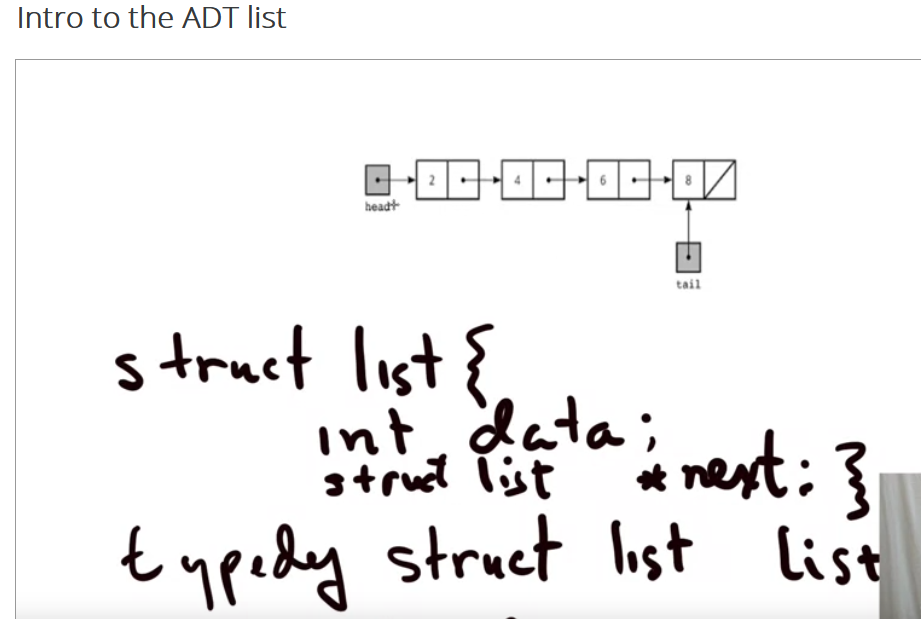 Intro to the ADT list
2 4 6 8
head
tail
struct list {
int data;
struct list * next; }
typedef struct list list